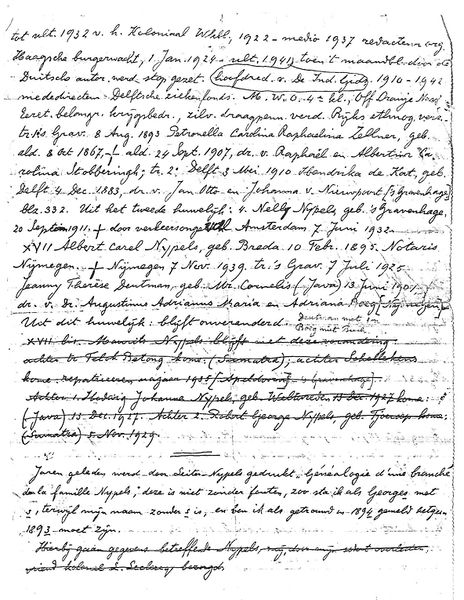 tot ult. 1932 v. h. Koloniaal Wkbl., 1922 - medio 1937 redacteur org.
Haagsche burgerwacht, 1 Jan. 1924 - ult. 1941, toen 't maandbl. door de
Duitsche autor. werd stop gezet. hoofdred. v. De Ind. Gids. 1910-1942
mededirecteur Delftsche ziekenfonds. M. W. O. 4e kl., Off. Oranje Nass.
Eeret. belangr. krijgsbedr., zilv. draagpenn. verd. Rijks ethnogr. verz.
tr. 's Grav. 8 Aug. 1893 Petronella Carolina Raphaelina Zellner, geb.
ald. 8 Oct 1867, † ald. 24 Sept. 1907, dr. v. Raphaël en Albertina Ca
rolina Stobberingh; tr. 2e Delft 3 Mei 1910 Hendrika de Kat, geb.
Delft 4 Dec. 1883, dr. v. Jan Otto en Johanna v. Nieuwpoort
Blz. 332. Uit het tweede huwelijk: 4. Nelly Nypels, geb. 's Gravenhage,
20 Septem 1911, † door verkeersongeval Amsterdam 7 Juni 1932.
XVII Albert Carel Nypels, geb. Breda 10 Febr. 1895. Notaris
Nijmegen. † Nijmegen 7 Nov. 1939. tr. 's Grav. 7 Juli 1925
Jeanny Thérèse Deutman, geb. Mr. Cornelis (Java) 13 Juni 1901,
dr. v. Dr. Augustinus Adrianus Maria en Adriana Boeg
Uit dit huwelijk: blijft onveranderd.
Deutman met 1 n
Boeg met
XVII bis. Maurits Nypels blijft met deze verandering
achter tr Telok Betong kome: (Sumatra); achter Schellekens
kome: repatrieeren 1935 (Apeldoorn)
Achter 1. Hedwig Johanna Nypels, geb. Weltevreden 15 Dec 1927 kome:
(Java) 15 Dec. 1927. Achter 2. Robert George Nypels, geb. kome:
(Sumatra) 5 Nov. 1929
Jaren geleden werd door Seiten Nypels gedrukt "Généalogie d'une branche
de la famille Nypels; deze is niet zonder fouten, zoo sta ik als Georges met
s, terwijl mijn naam zonder s is, en ben ik als getrouwd in 1894 gemeld hetgeen
1893 moet zijn.
Hierbij gaan gegevens betreffende Nypels, mij door mijn
vriend kolonel bezorgd.